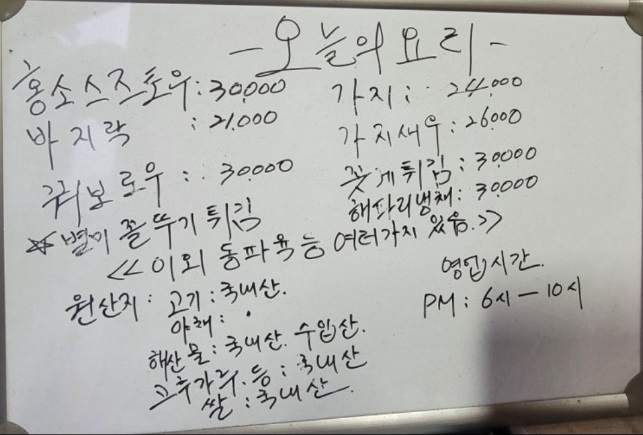 - 오늘의 요리 -
홍소스즈토우 : 30,000
바지락 : 21,000
꿔보로우 : 30,000
☆ 별미 쫄뚜기 튀김
가지 : 24,000
가지새우 : 26,000
꽃게튀김 : 30,000
해파리냉채 : 30,000
<< 이외 동파육 등 여러가지 있음. >>
원산지 : 고기 : 국내산.
야채 : .
해산물 : 국내산. 수입산.
고추가루. 등 : 국내산
쌀 : 국내산
영업시간.
PM : 6시 - 10시